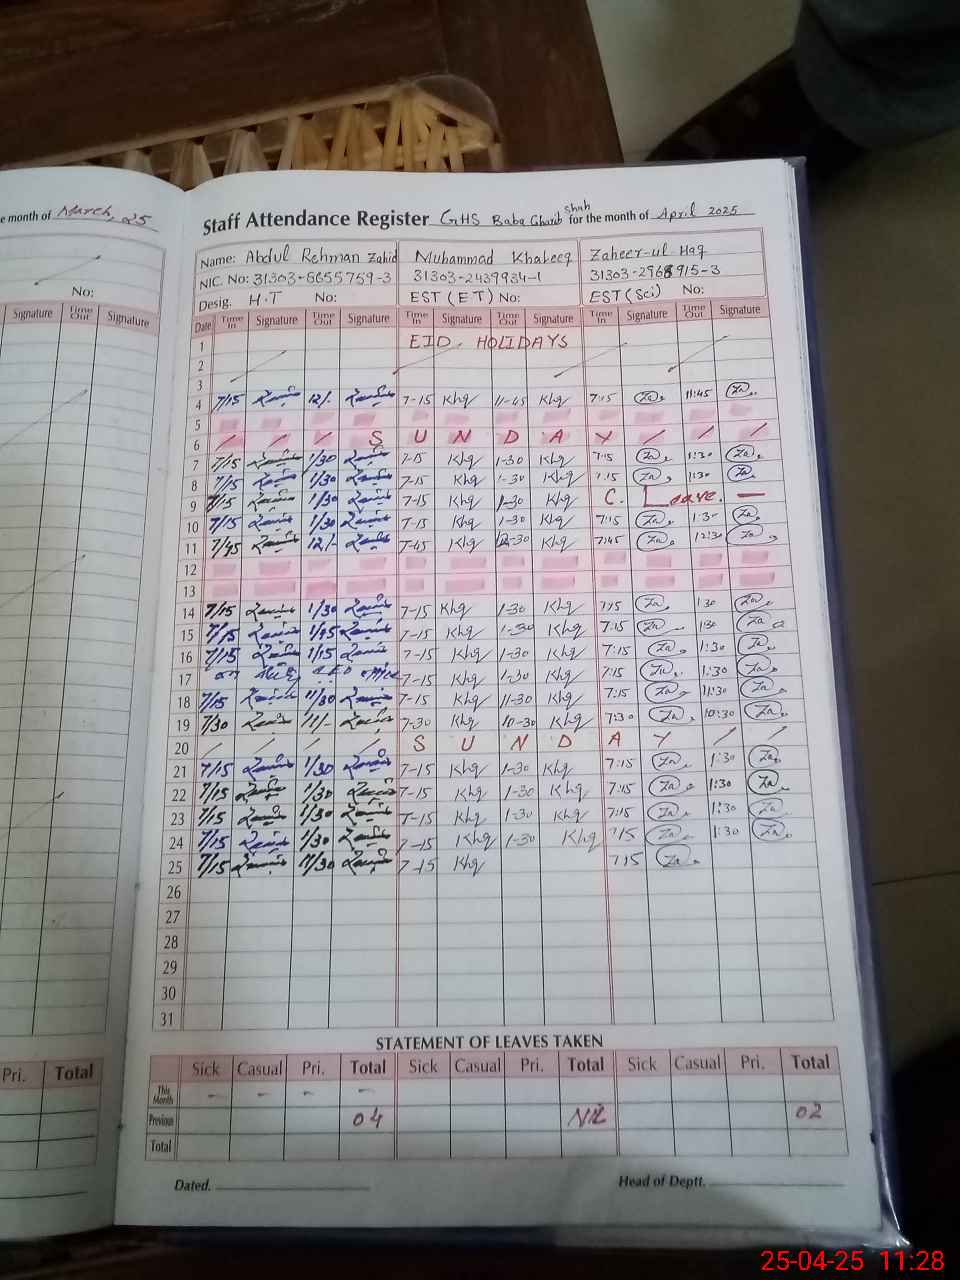 e month of March, 25
Staff Attendance Register GHS Baba Gharib Shah for the month of April 2025
Name: Abdul Rehman Zahid Muhammad Khaleeq Zaheer-ul Haq
NIC. No: 31303-5655759-3 31303-2439934-1 31303-2968915-3
No: Desig. H.T No: EST (ET) No: EST (Sci) No:
Signature Time Out Signature Date Time In Signature Time Out Signature Time In Signature Time Out Signature Time In Signature Time Out Signature
1 EID HOLIDAYS
2
3
4 7/15 12/- 7-15 Khq 11-45 Khq 7:15 Za. 11:45 Za.
5
6 S U N D A Y
7 7/15 1/30 7-15 Khq 1-30 Khq 7:15 Za. 1:30 Za.
8 7/15 1/30 7-15 Khq 1-30 Khq 7:15 Za. 1:30 Za.
9 7/15 1/30 7-15 Khq 1-30 Khq C. Leave.
10 7/15 1/30 7-15 Khq 1-30 Khq 7:15 Za. 1:30 Za.
11 7/45 12/- 7-45 Khq 12-30 Khq 7:45 Za. 12:30 Za.
12
13
14 7/15 1/30 7-15 Khq 1-30 Khq 7:15 Za. 1:30 Za.
15 7/15 1/45 7-15 Khq 1-30 Khq 7:15 Za. 1:30 Za.
16 7/15 1/15 7-15 Khq 1-30 Khq 7:15 Za. 1:30 Za.
17 on office 7-15 Khq 1-30 Khq 7:15 Za. 1:30 Za.
18 7/15 11/30 7-15 Khq 11-30 Khq 7:15 Za. 11:30 Za.
19 7/30 11/- 7-30 Khq 10-30 Khq 7:30 Za. 10:30 Za.
20 S U N D A Y
21 7/15 1/30 7-15 Khq 1-30 Khq 7:15 Za. 1:30 Za.
22 7/15 1/30 7-15 Khq 1-30 Khq 7:15 Za. 1:30 Za.
23 7/15 1/30 7-15 Khq 1-30 Khq 7:15 Za. 1:30 Za.
24 7/15 1/30 7-15 Khq 1-30 Khq 7:15 Za. 1:30 Za.
25 7/15 11/30 7-15 Khq 7:15 Za.
26
27
28
29
30
31
STATEMENT OF LEAVES TAKEN
Pri. Total Sick Casual Pri. Total Sick Casual Pri. Total Sick Casual Pri. Total
This Month - - - -
Previous 04 NIL 02
Total
Dated. Head of Deptt.
25-04-25 11:28